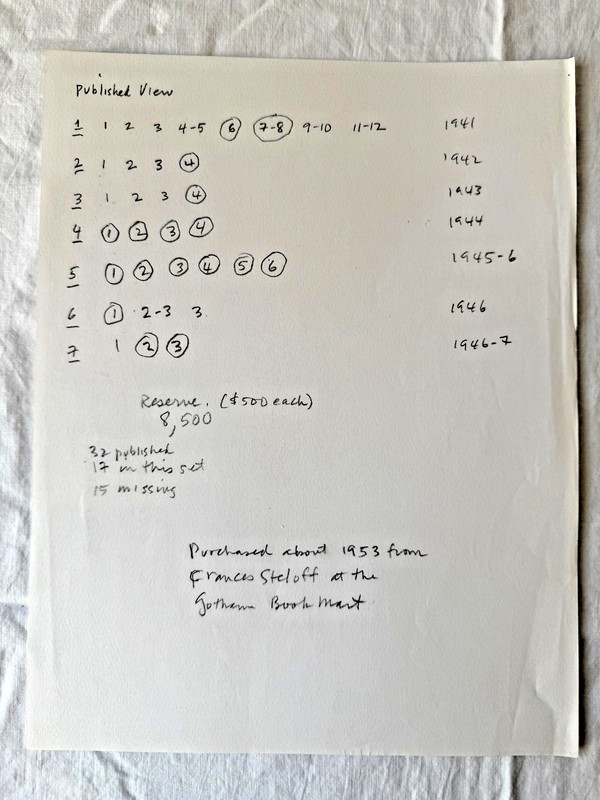 Published View
1 1 2 3 4-5 6 7-8 9-10 11-12 1941
2 1 2 3 4 1942
3 1 2 3 4 1943
4 1 2 3 4 1944
5 1 2 3 4 5 6 1945-6
6 1 2-3 3 1946
7 1 2 3 1946-7
Reserve. ($500 each)
8,500
32 published
17 in this set
15 missing
Purchased about 1953 from
Frances Steloff at the
Gotham Book Mart